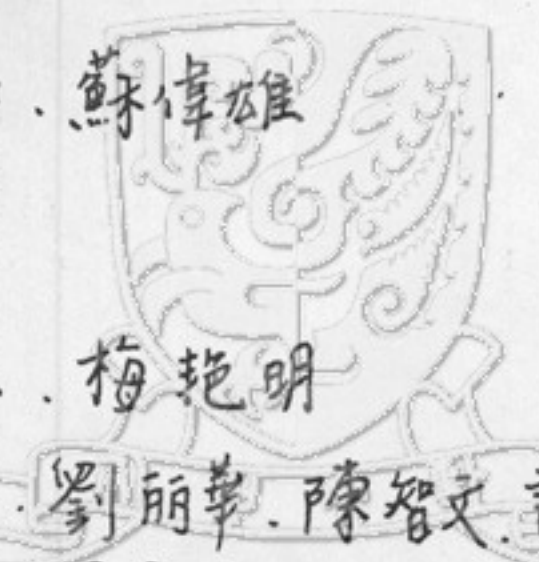 .蘇偉雄
..梅艳明
.劉丽華.陳智文.